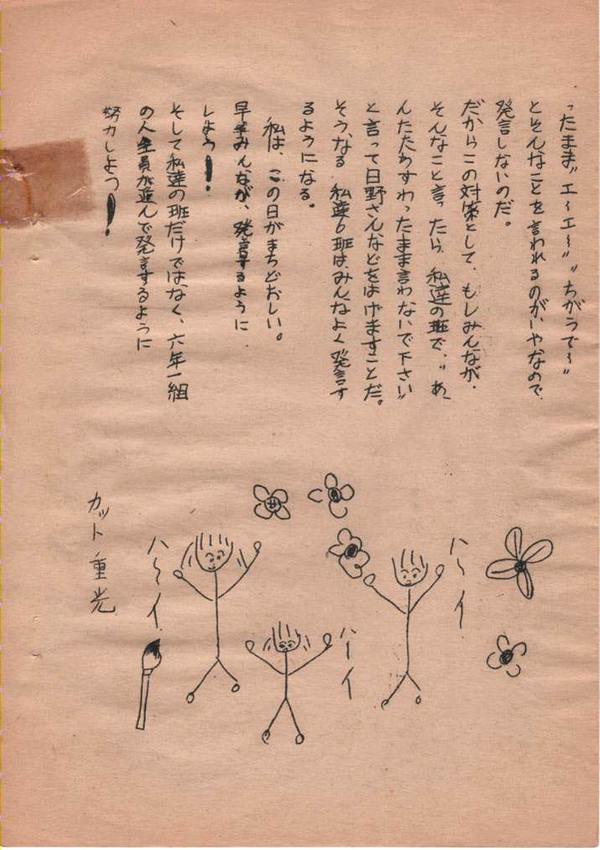 "たまま"エ～エ～""ちがうで～"
とそんなことを言われるのがいやなので
発言しないのだ。
だからこの対策として、もしみんなが、
そんなこと言ったら、私達の班で、"あ、
んたたちすわったまま言わないで下さい"
と言って日野さんなどをはげますことだ。
そうなる 私達6班はみんなよく発言す
るようになる。
私は、この日がまちどおしい。
早くみんなが、発言するように
しよう!
そして私達の班だけではなく、六年一組
の人全員が進んで発言するように
努力しよう!
ハ～イ
ハーイ
ハ～イ
カット 重光